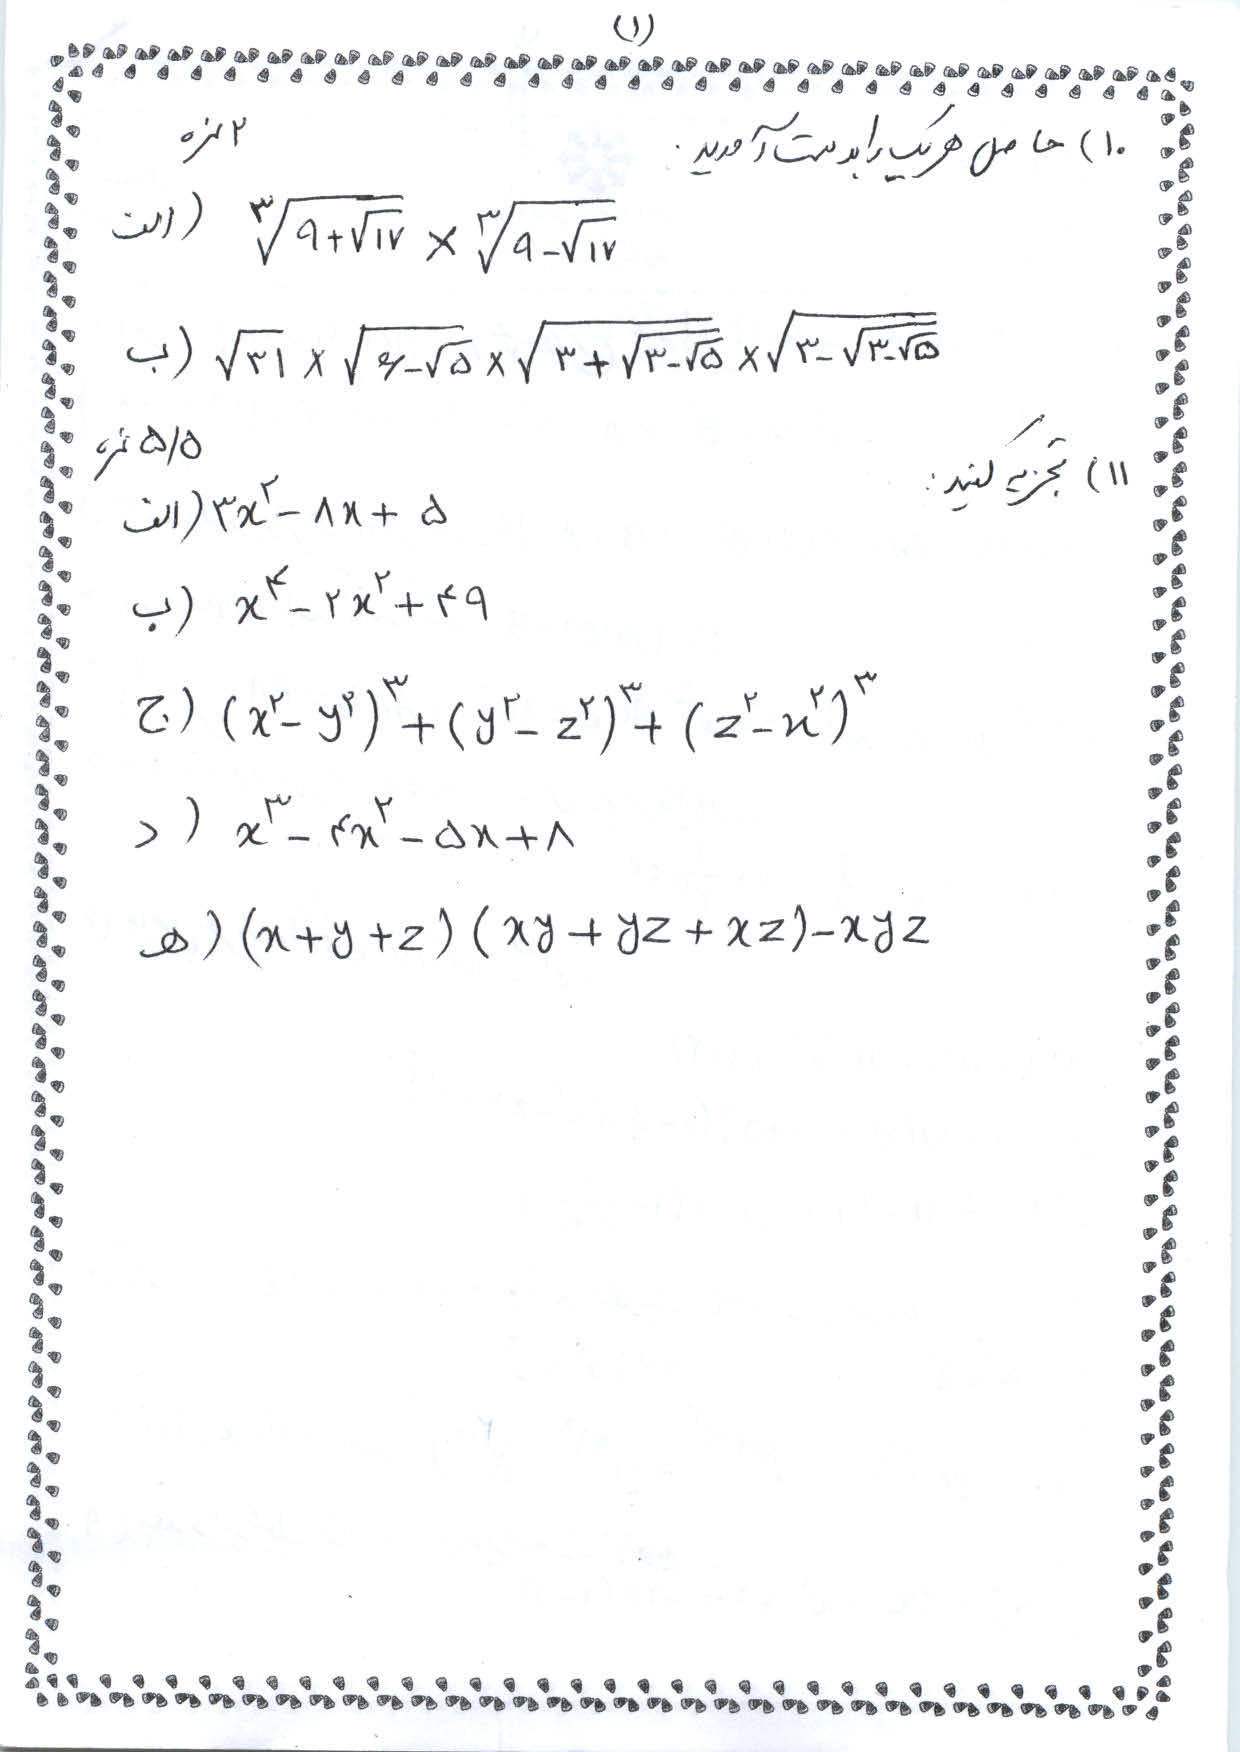 (۱)
۱۰) حاصل هر یک را بدست آورید. ۲ نمره
الف) ∛(۹+√۱۷) × ∛(۹-√۱۷)
ب) √۳۱ × √(۶-√۵) × √(۳+√(۳-√۵)) × √(۳-√(۳-√۵))
۱۱) تجزیه کنید: ۵/۵ نمره
الف) ۳x^۲ - ۸x + ۵
ب) x^۴ - ۲x^۲ + ۴۹
ج) (x^۲ - y^۲)^۳ + (y^۲ - z^۲)^۳ + (z^۲ - x^۲)^۳
د) x^۳ - ۴x^۲ - ۵x + ۸
ه) (x+y+z)(xy+yz+xz)-xyz